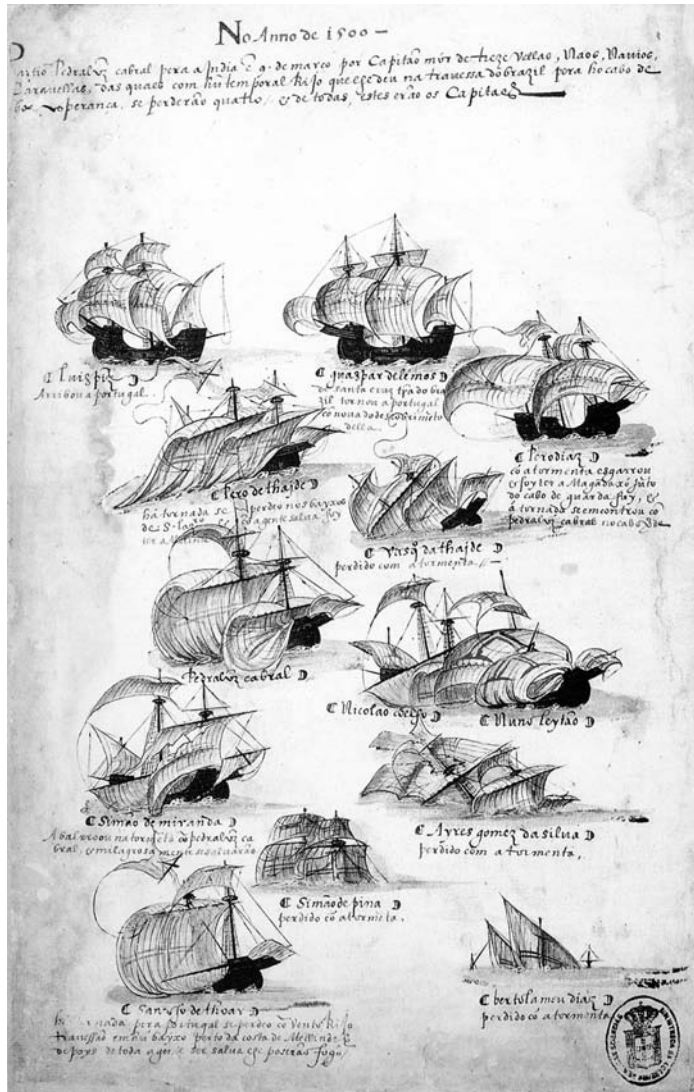 No Anno de 1500 —
Partio Pedralvz cabral pera a India e 9. de março por Capitão mór de treze Vellao, Naos, Navios,
Caravellas, das quaes com hũ temporal Rijo que lhe deu na travessa do brazil pera ho cabo de
boa esperança, se perderão quatro, e de todas, estes erão os Capitaẽs
Luis piz
Arribou a portugal.
guaspar de lemos
da santa cruz trã do bra
zil tornou a portugal
cõ nova do descobrimẽto
della.
Pero diaz
cõ a tormenta esgarrou
e foy ter a Magadaxó jũto
do cabo de guardafuy, e
á tornada se emcontrou cõ
pedralvz cabral no cabo
Pero de thajde
há tornada se perdeo nos bayxos
de S. a gente salva foy
ter a
Vasq̃ da thajde
perdido com a tormenta.
Pedralvz cabral
Nicolao coelho
Nuno leytão
Simão de miranda
Abalrroou na tormẽta cõ pedralvz ca
bral, e milagrosa mente se salvarão
Ayres gomez da silva
perdido com a tormenta.
Simão de pina
perdido cõ a tormẽta.
Sancho de thoar
tornada pera portugal se perdeo cõ vento Rijo
travessão em hũ bayxo perto da costa de Mellinde
depoys de toda a gẽte ser salva lhe poserão fogo
bertolameu diaz
perdido cõ a tormenta